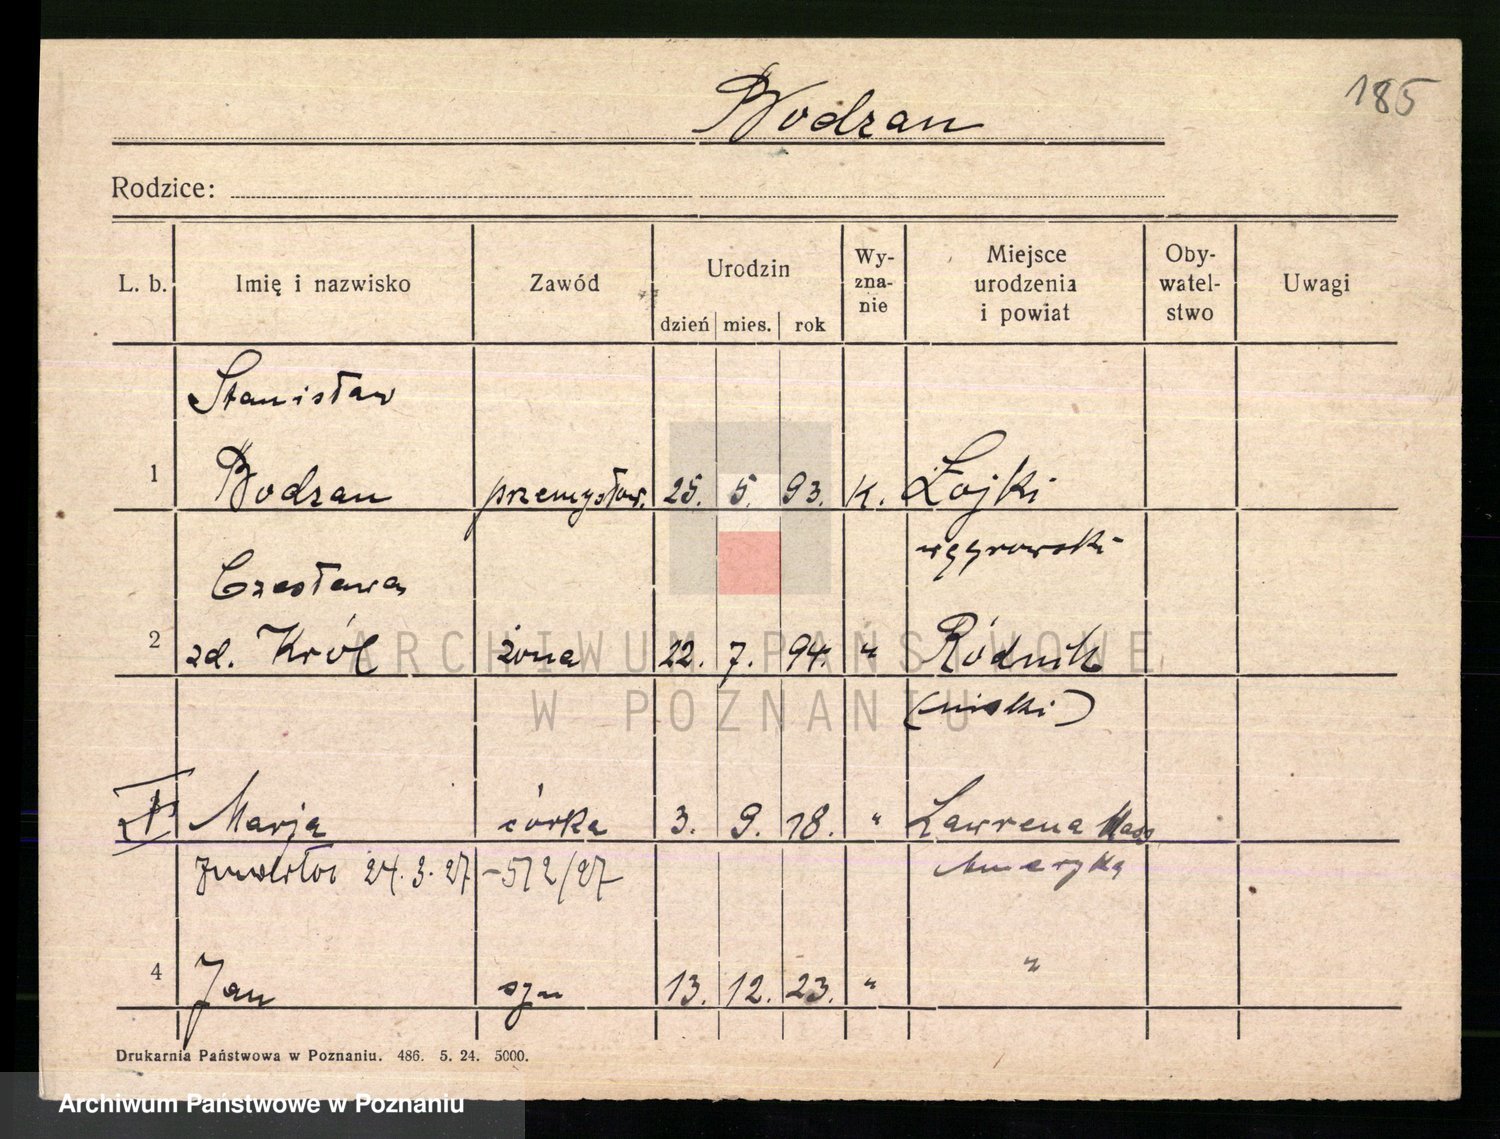 185
Bodzan
Rodzice:
L. b. Imię i nazwisko Zawód Urodzin dzień mies. rok Wy-zna-nie Miejsce urodzenia i powiat Oby-watel-stwo Uwagi
Stanisław
1 Bodzan przemysłow. 25. 5. 93. K. Łojki
węgrowski
Czesława
2 zd. Król żona 22. 7. 94. " Ródnik
(niski)
Marja córka 3. 9. 18. " Lawrena Mass
24. 3. 27 - 572/27 Ameryka
4 Jan syn 13. 12. 23. " "
Drukarnia Państwowa w Poznaniu. 486. 5. 24. 5000.
ARCHIWUM PAŃSTWOWE
W POZNANIU
Archiwum Państwowe w Poznaniu